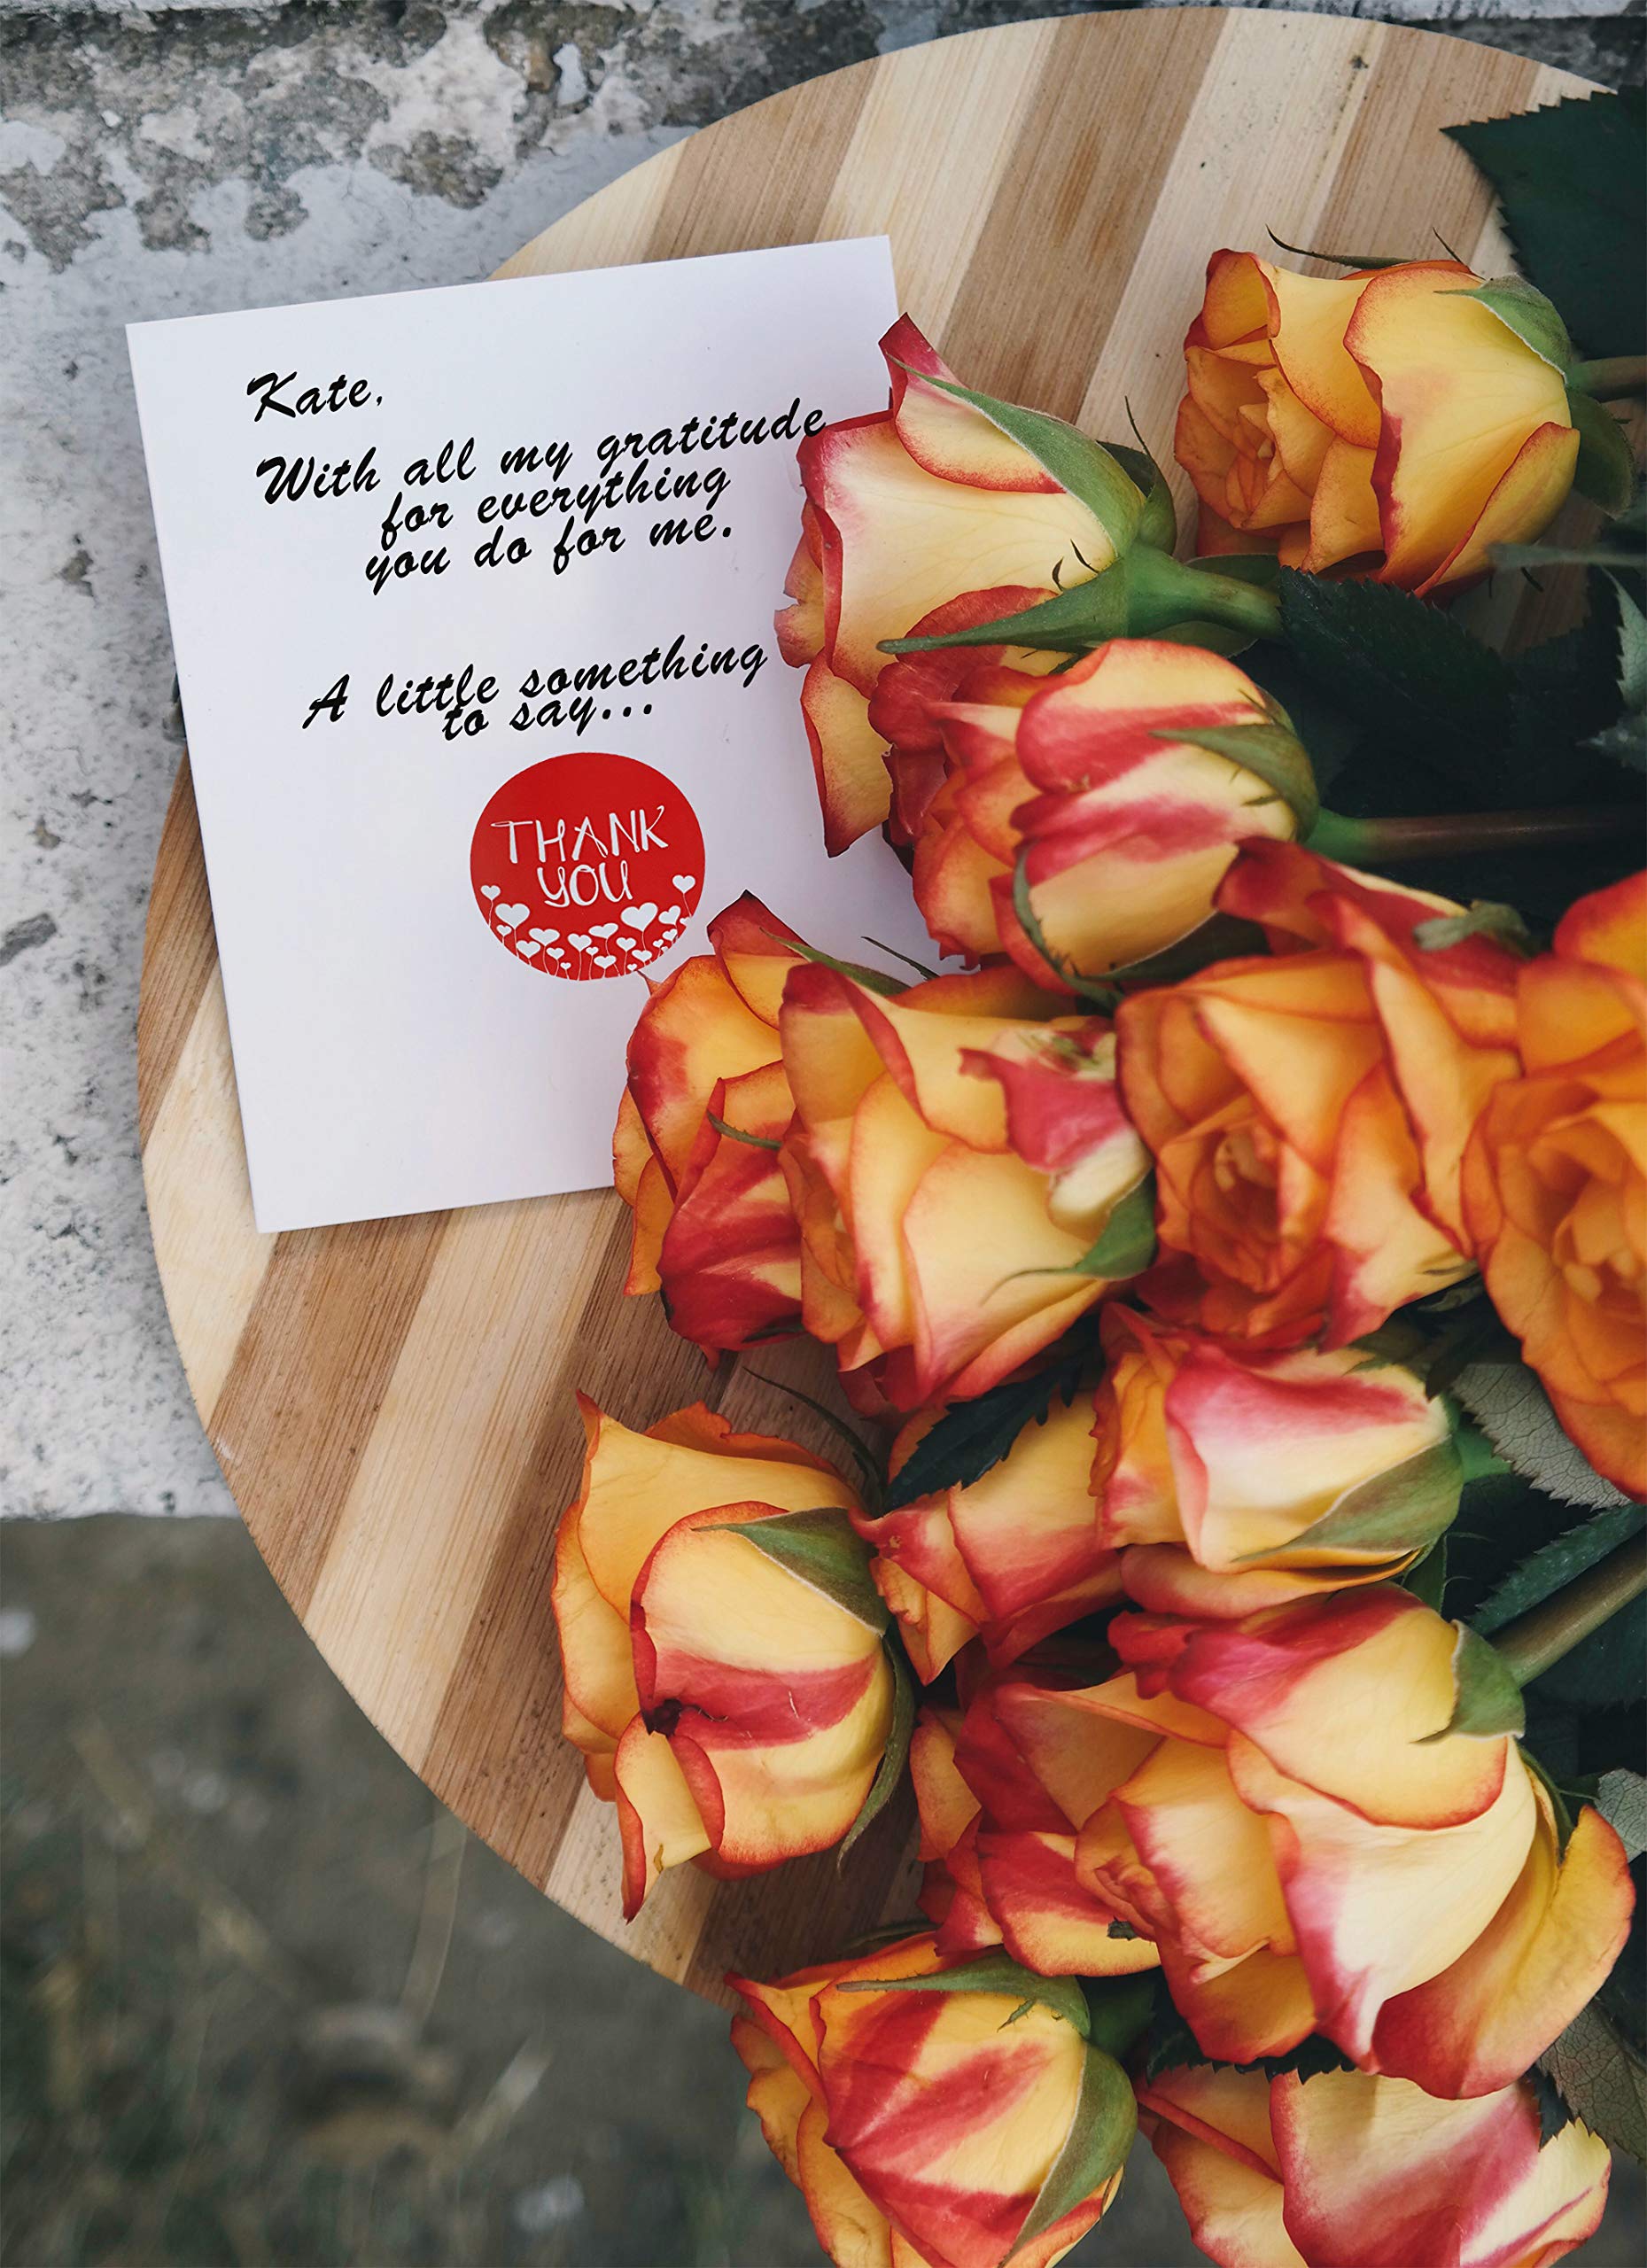 Kate,
With all my gratitude
for everything
you do for me.
A little something
to say...
THANK
YOU